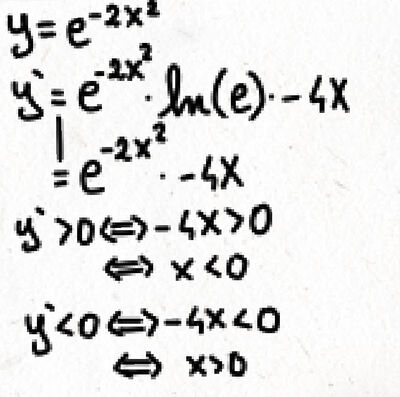 y = e^{-2x^2}
y' = e^{-2x^2} · ln(e) · -4x
= e^{-2x^2} · -4x
y' > 0 ⇔ -4x > 0
⇔ x < 0
y' < 0 ⇔ -4x < 0
⇔ x > 0